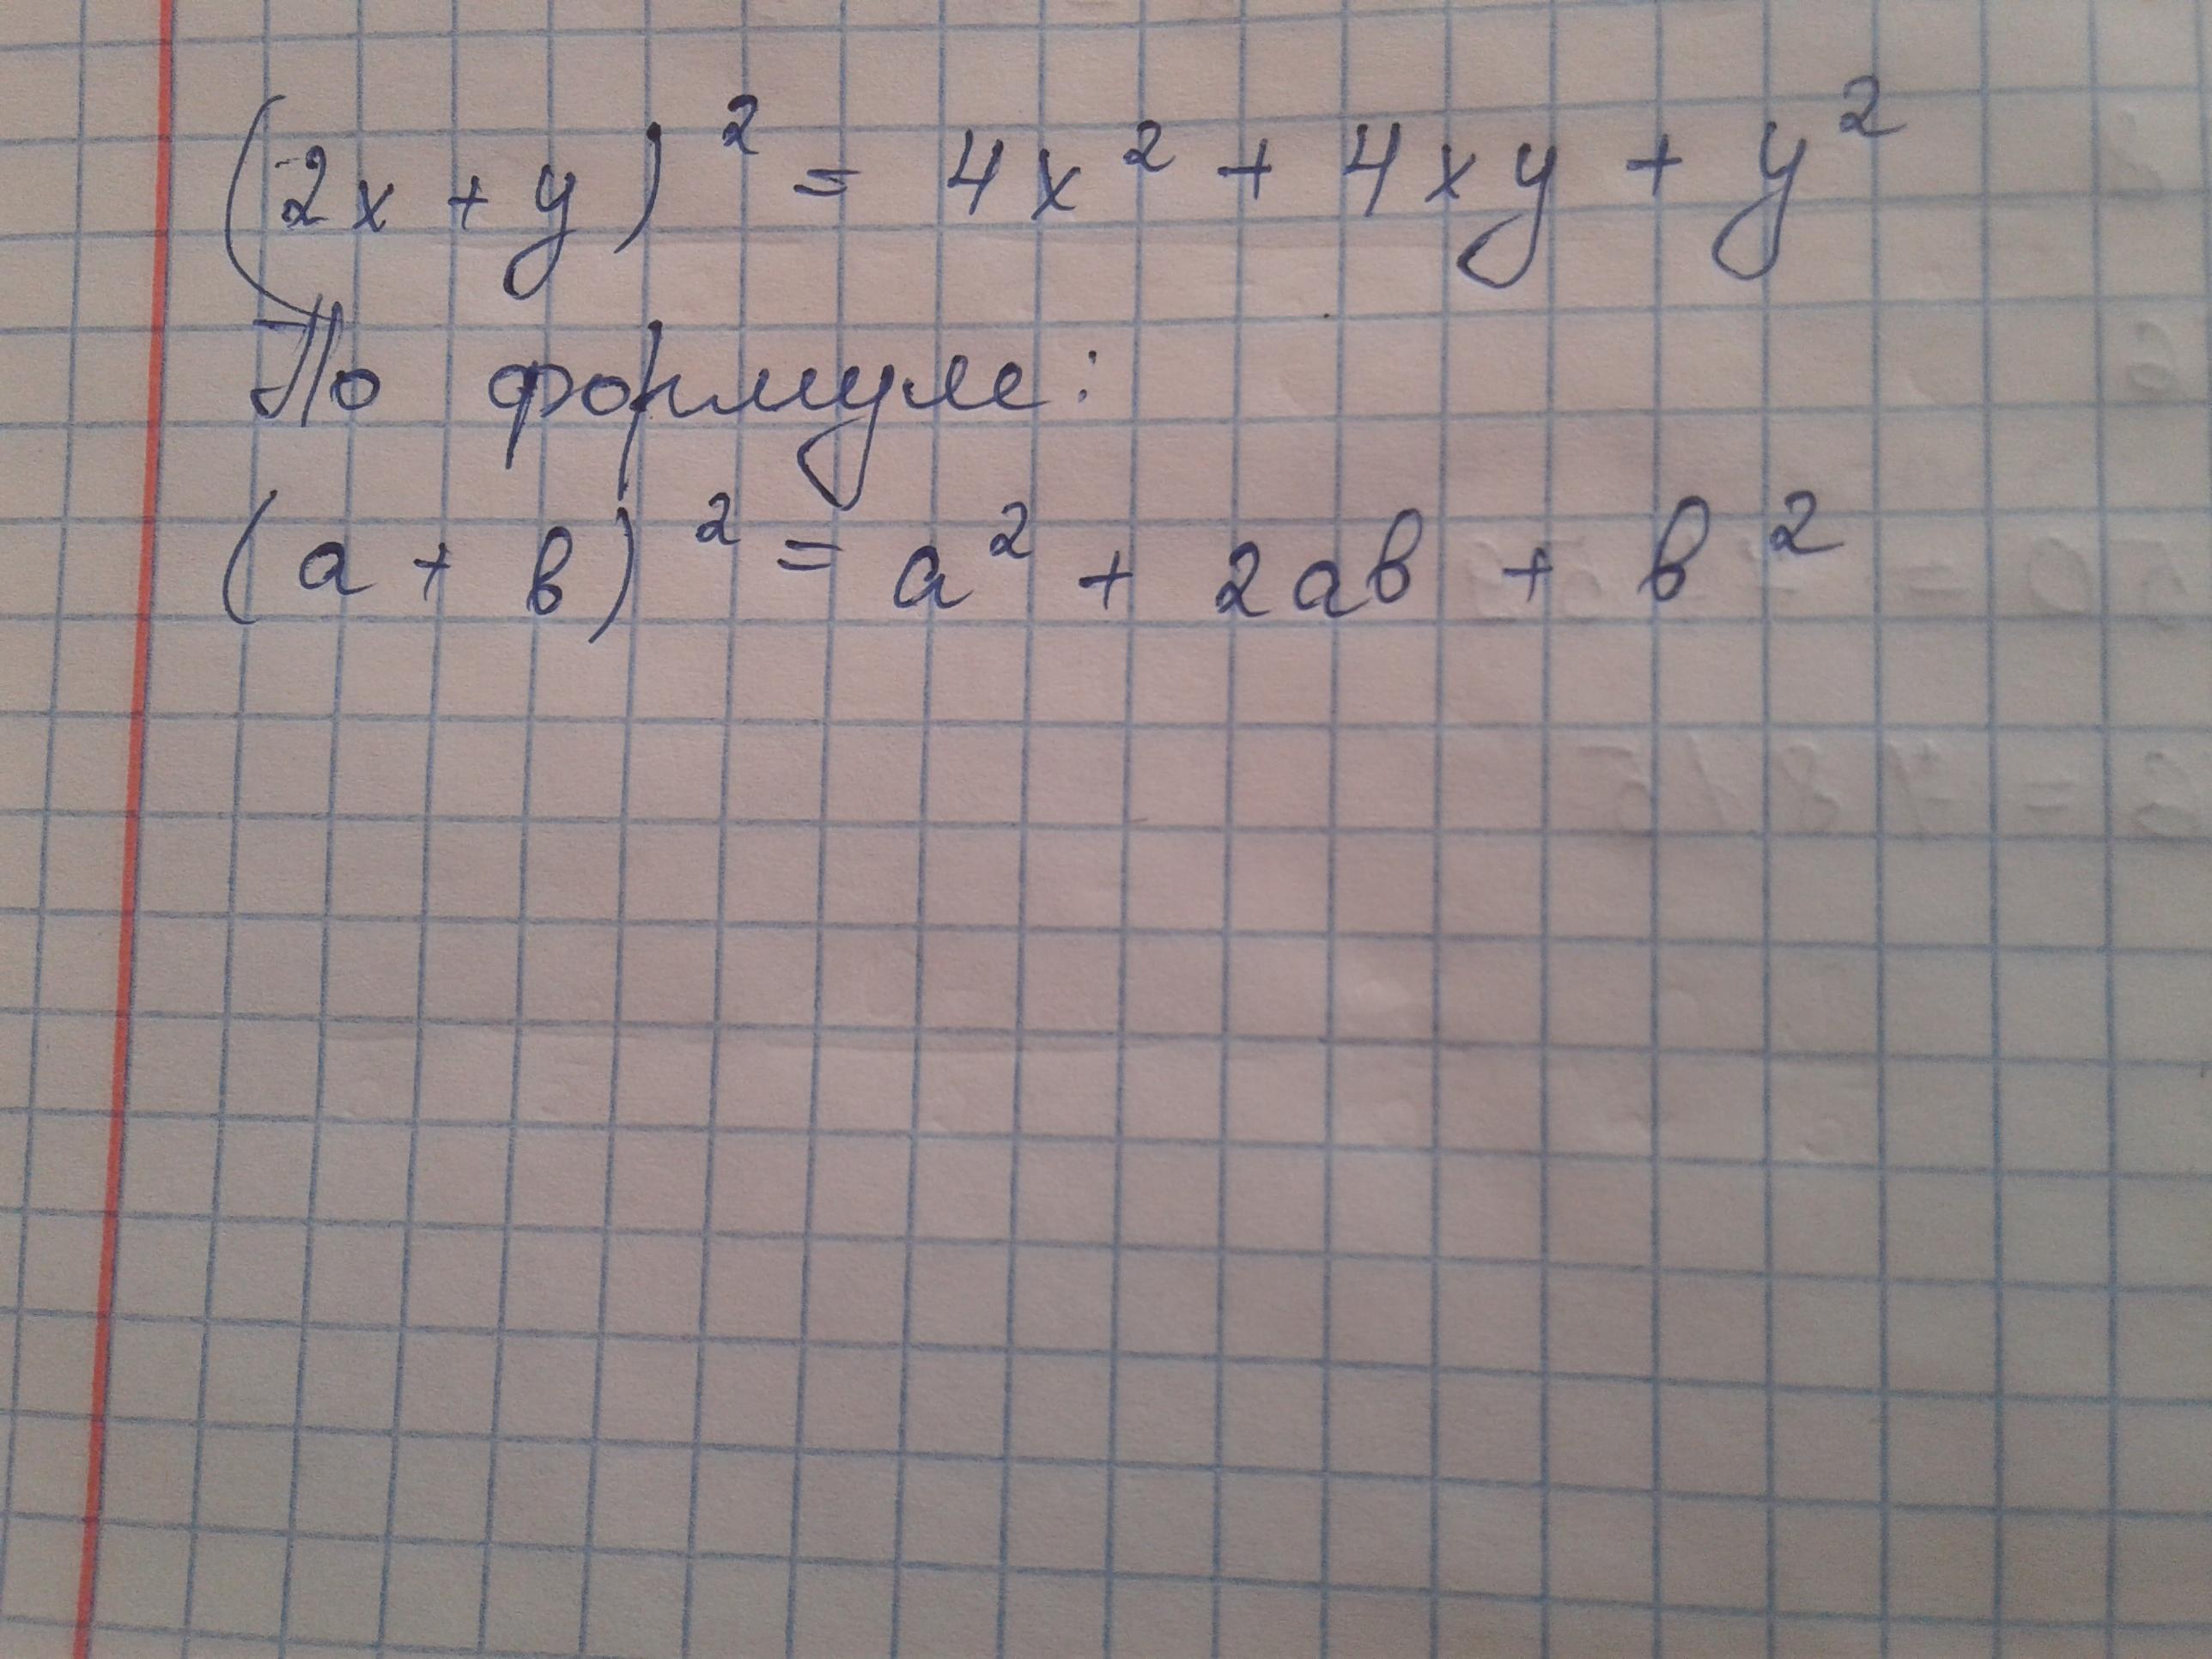 (2x + y)² = 4x² + 4xy + y²
По формуле:
(a + b)² = a² + 2ab + b²